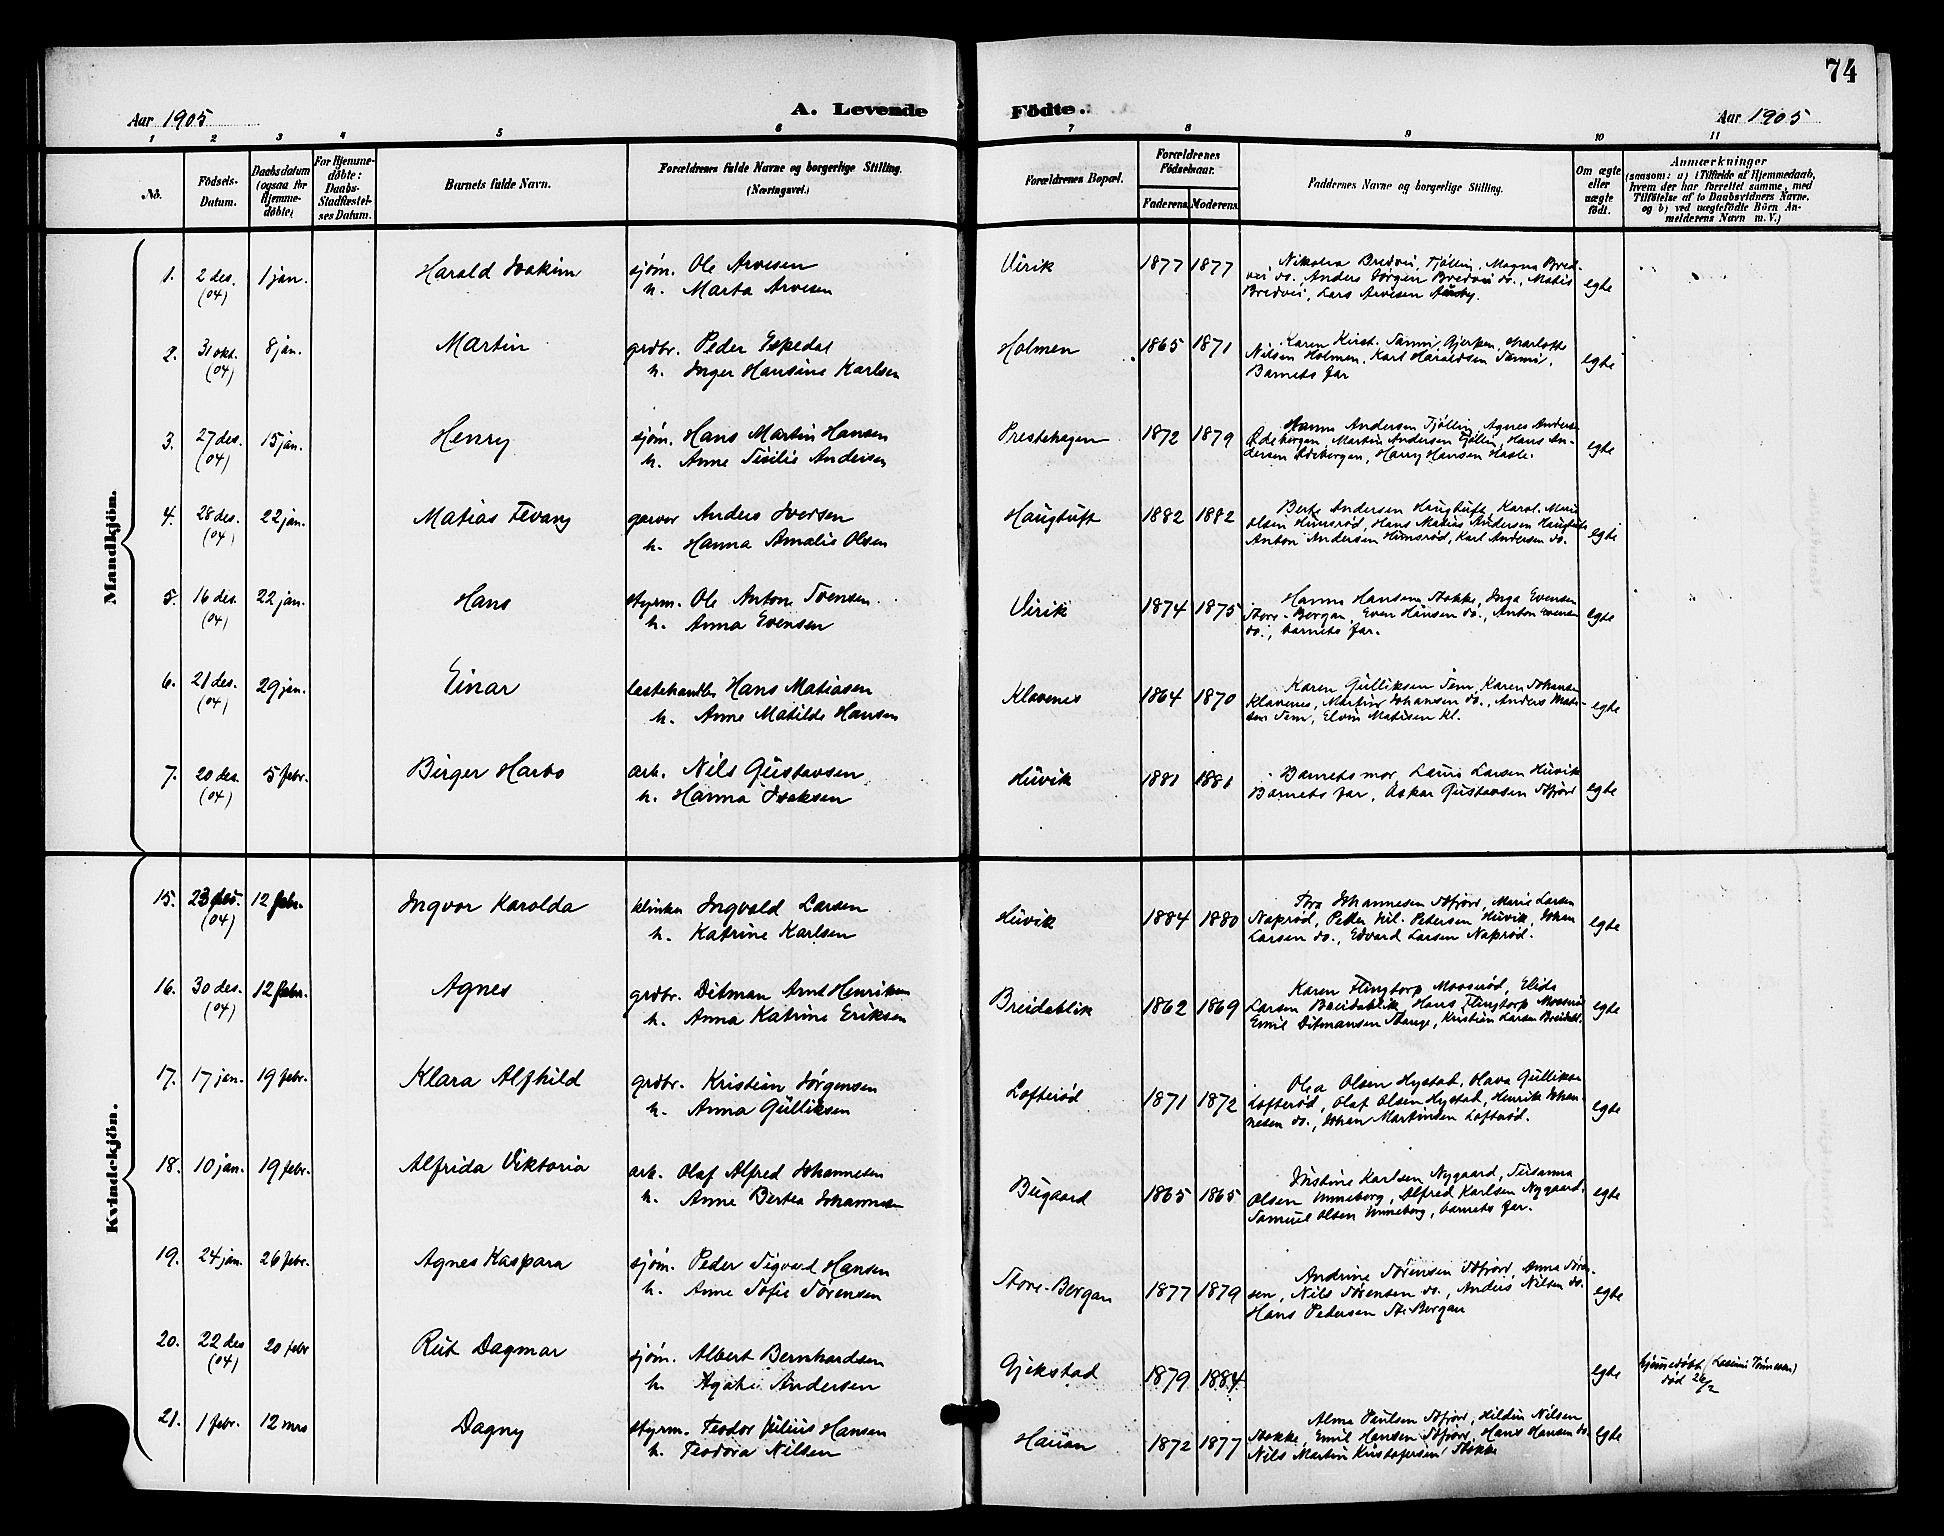 74
Aar 1905
A. Levende
Födte.
Aar 1905
1 2 3 4 5 6 7 8 9 10 11
No.
Födsels-
Datum.
Daabsdatum
(ogsaa for
Hjemme-
døbte)
For Hjemme-
døbte:
Daabs-
Stadfæstel-
ses Datum.
Barnets fulde Navn.
Forældrenes fulde Navne og borgerlige Stilling.
(Næringsvei.)
Forældrenes Bopæl.
Forældrenes
Födselsaar.
Faderens. Moderens.
Faddernes Navne og borgerlige Stilling.
Om ægte
eller
uægte
födt.
Anmærkninger
(saasom: a) i Tilfælde af Hjemmedaab,
hvem der har forrettet samme, med
Tilföielse af to Daabsvidners Navne,
og b) ved uægtefödte Börn An-
melderens Navn m. V.)
Mandkjön.
1. 2 des. (04) 1 jan. Harald Joakim
sjøm. Ole Arvesen
h. Marta Arvesen
Virik 1877 1877
Nikolea Bredvei, Tjølling, Magna Bred-
vei do. Anders Jørgen Bredvei do., Matis
Bredvei, Lars Arvesen
egte
2. 31 okt. (04) 8 jan. Martin
grdbr. Peder Espedal
h. Inger Hansine Karlsen
Holmen 1865 1871
Karen Kirst. Gjerpen, Charlotte
Nilsen Holmen, Karl Haraldsen
Barnets far
egte
3. 27 des. (04) 15 jan. Henry
sjøm. Hans Martin Hansen
h. Anne Sesilie Andersen
Prestehagen 1872 1879
Hanna Andersen Tjølling, Agnes Anders.
Ødebergan, Martin Andersen Tjølling, Hans An-
dersen Ødebergan, Harry Hansen Hasle.
egte
4. 28 des. (04) 22 jan. Matias Fevang
garver Anders Iversen
h. Hanna Amalie Olsen
Haugtuft 1882 1882
Berte Andersen Haugtuft, Karol. Marie
Olsen Himsrød, Hans Matias Andersen Haugtuft
Anton Andersen Himsrød, Karl Andersen do.
egte
5. 16 des. (04) 22 jan. Hans
styrm. Ole Anton Svensen
h. Anna Evensen
Virik 1874 1875
Hanna Hansen Stokke, Inga Evensen
Store-Bergan, Even Hansen do., Anton Evensen
do., barnets far.
egte
6. 21 des. (04) 29 jan. Einar
Hans Matiasen
h. Anne Matilde Hansen
Klavenes 1864 1870
Karen Gulliksen Sem, Karen Johansen
Klavenes, Martin Johansen do., Anders Mati-
sen Sem, Elvin Matisen Kl.
egte
7. 20 des. (04) 5 febr. Birger Harbo
arb. Nils Gustavsen
h. Hanna Isaksen
Huvik 1881 1881
Barnets mor, Laura Larsen Huvik
Barnets far, Oskar Gustavsen Sdfjord
egte
Kvindekjön.
15. 23 des. (04) 12 febr. Ingvor Karolda
klinker Ingvald Larsen
h. Katrine Karlsen
Huvik 1884 1880
Tora Johannesen Sdfjord, Marie Larsen
Naprød, Petter Vil. Petersen Huvik, Johan
Larsen do., Edvard Larsen Naprød.
egte
16. 30 des. (04) 12 febr. Agnes
grdbr. Ditman Arnt Henriksen
h. Anna Katrine Eriksen
Breidablik 1862 1869
Karen Flingtorp Moasrød, Elida
Larsen Breidablik, Hans Flingtorp Moasrød
Emil Ditmansen, Kristian Larsen Breidabl.
egte
17. 17 jan. 19 febr. Klara Alfhild
grdbr. Kristian Jørgensen
h. Anna Gulliksen
Lofterød 1871 1872
Olea Olsen Hystad, Hava Gulliksen
Lofterød, Olaf Olsen Hystad, Henrik Johan-
nesen do., Johan Martinsen Lofterød.
egte
18. 10 jan. 19 febr. Alfrida Viktoria
arb. Olaf Alfred Johannesen
h. Anne Bertea Johannesen
Bugaard 1865 1865
Justine Karlsen Nygaard, Susanna
Olsen Unneberg, Alfred Karlsen Nygaard,
Samuel Olsen Unneberg, barnets far.
egte
19. 24 jan. 26 febr. Agnes Kaspara
sjøm. Peder Sigvard Hansen
h. Anne Sofie Sørensen
Store-Bergan 1877 1879
Andrine Sørensen Sdfjord, Anna Søren-
sen, Nils Sørensen do., Anders Nilsen do.
Hans Pedersen St. Bergan
egte
20. 22 des (04) 20 febr Rut Dagmar
sjøm. Albert Bernhardsen
h. Agate Andersen
Gjekstad 1879 1884
egte
hjemmedøbt
død 26/2
21. 1 febr. 12 mrs Dagny
styrm. Teodor Julius Hansen
h. Teodora Nilsen
Hauan 1872 1877
Alma Paulsen Sdfjord, Hildur Nilsen
Stokke, Emil Hansen Sdfjord, Hans Hansen do.
Nils Martin Kristofersen, Stokke
egte